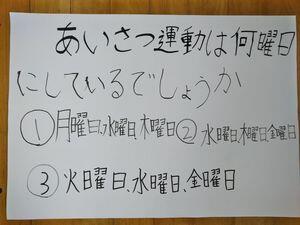 あいさつ運動は何曜日
にしているでしょうか
①月曜日、水曜日、木曜日 ②水曜日、木曜日、金曜日
③火曜日、水曜日、金曜日